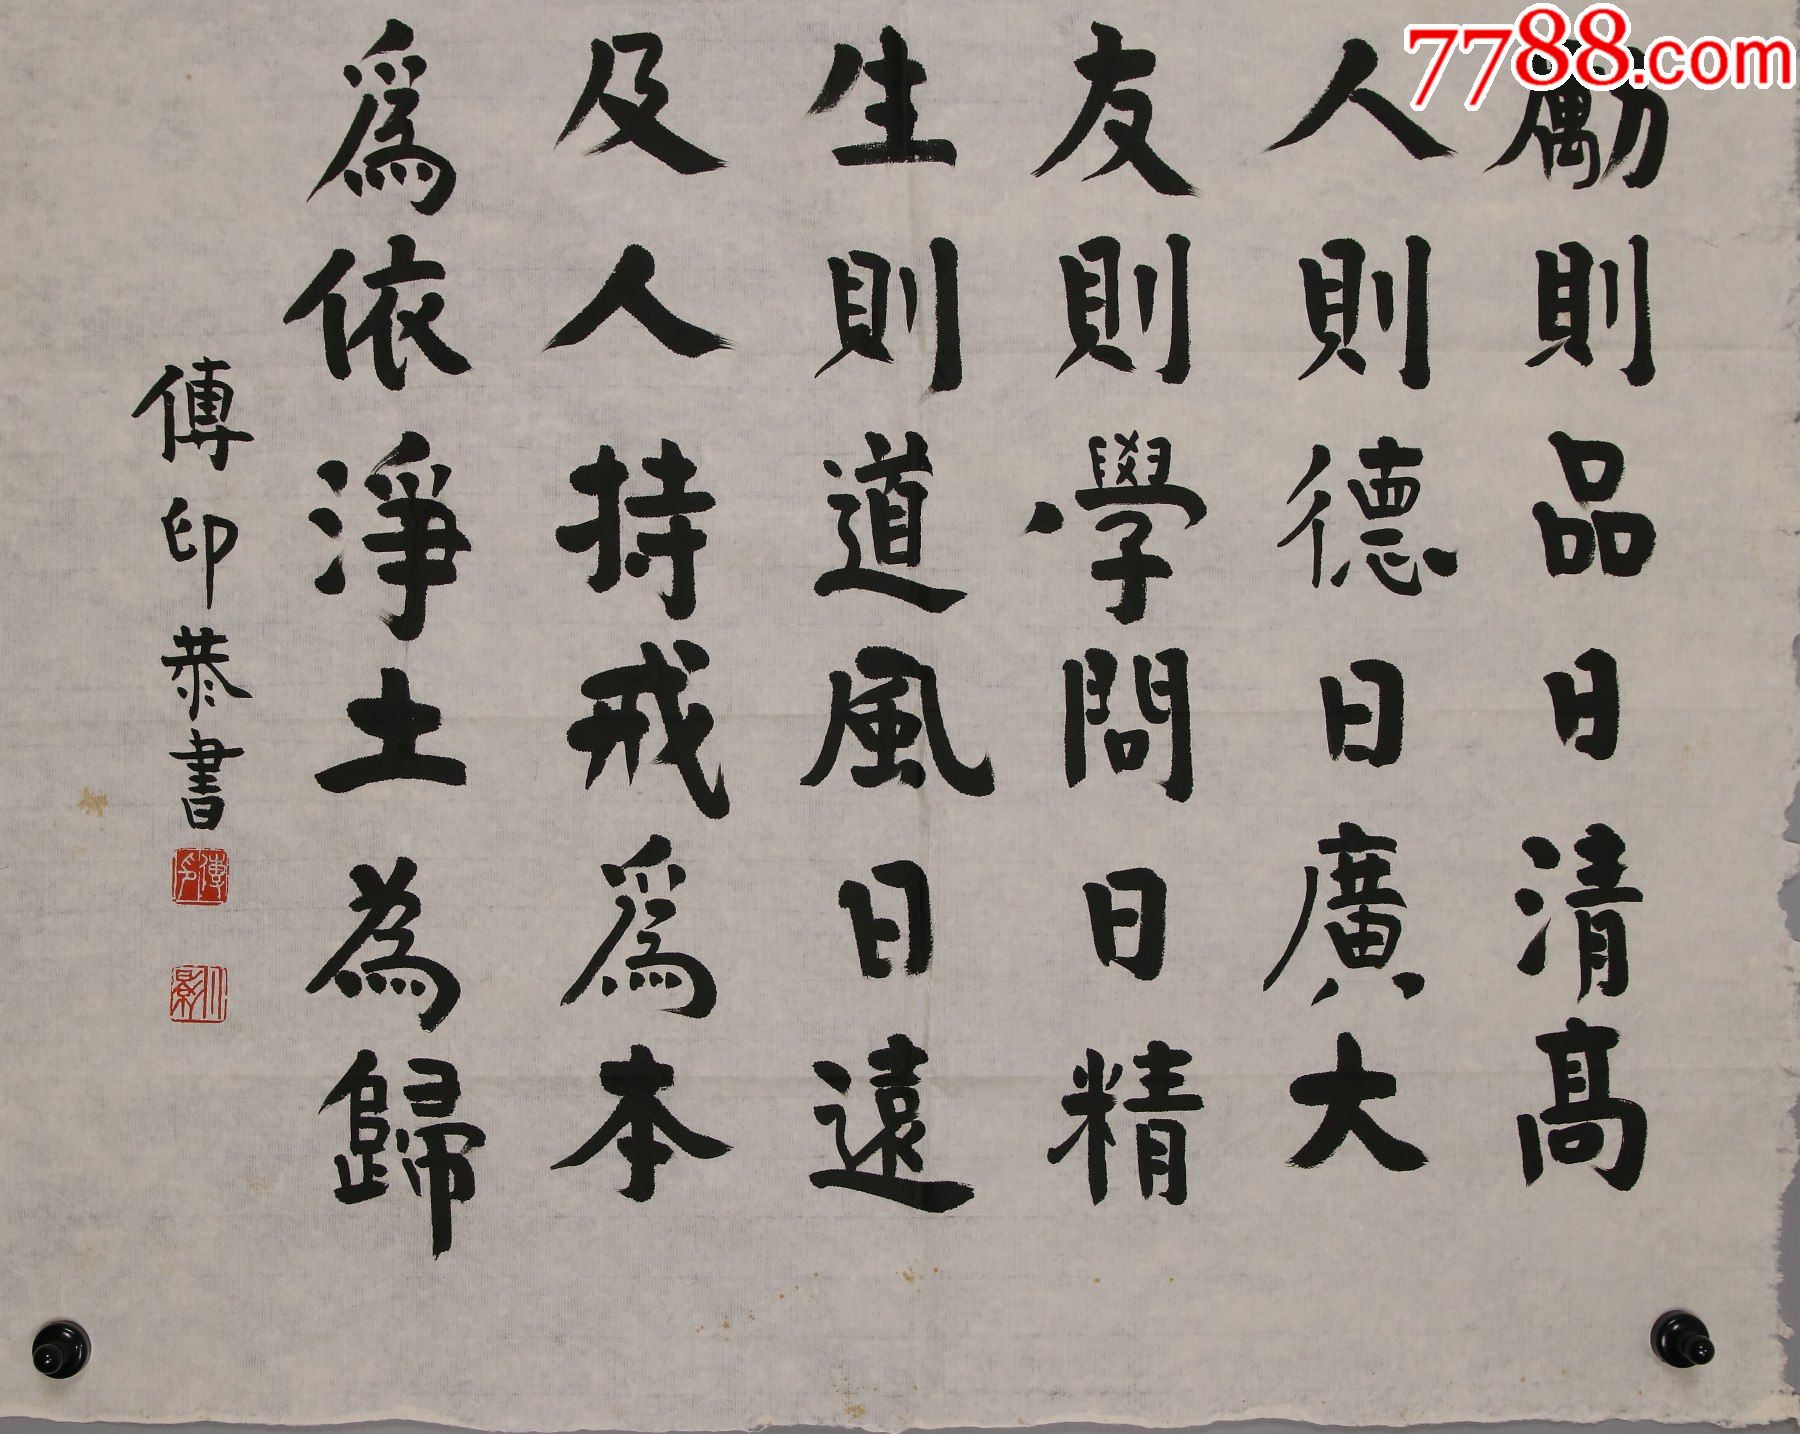 7788.com
勵則品日清高
人則德日廣大
友則學問日精
生則道風日遠
及人持戒為本
為依淨土為歸
傳印恭書
傳印